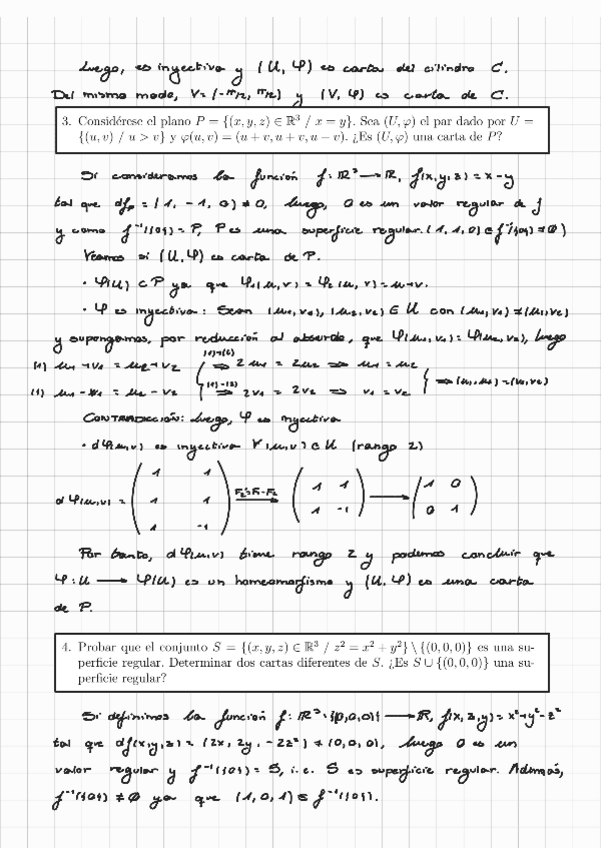 Luego, es inyectiva y (U, φ) es carta del cilindro C.
Del mismo modo, V=(-π/2, π/2) y (V, φ) es carta de C.
3. Considérese el plano P = {(x, y, z) ∈ ℝ³ / x = y}. Sea (U, φ) el par dado por U =
{(u, v) / u > v} y φ(u, v) = (u + v, u + v, u − v). ¿Es (U, φ) una carta de P?
Si consideramos la función f: ℝ³ → ℝ, f(x,y,z) = x-y
tal que dfₚ = (1, -1, 0) ≠ 0, luego, 0 es un valor regular de f
y como f⁻¹({0}) = P, P es una superficie regular. (1, 1, 0) ∈ f⁻¹({0}) ≠ ∅)
Veamos si (U, φ) es carta de P.
· φ(U) ⊂ P ya que φ₁(u, v) = φ₂(u, v) = u+v.
· φ es inyectiva: Sean (u₁, v₁), (u₂, v₂) ∈ U con (u₁, v₁) ≠ (u₂, v₂)
y supongamos, por reducción al absurdo, que φ(u₁, v₁) = φ(u₂, v₂), luego
(1)+(2)
u₁ + v₁ = u₂ + v₂ ⟹ 2u₁ = 2u₂ ⟹ u₁ = u₂
u₁ - v₁ = u₂ - v₂ ⟹ 2v₁ = 2v₂ ⟹ v₁ = v₂ ⟹ (u₁, v₁) = (u₂, v₂)
CONTRADICCIÓN: Luego, φ es inyectiva
· dφ(u,v) es inyectiva ∀(u,v) ∈ U (rango 2)
dφ(u,v) = ( 1 1 ; 1 1 ; 1 -1 ) ⟶ ( 1 1 ; 1 -1 ) ⟶ ( 1 0 ; 0 1 )
Por tanto, dφ(u,v) tiene rango 2 y podemos concluir que
φ: U ⟶ φ(U) es un homeomorfismo y (U, φ) es una carta
de P.
4. Probar que el conjunto S = {(x, y, z) ∈ ℝ³ / z² = x² + y²} \ {(0, 0, 0)} es una su-
perficie regular. Determinar dos cartas diferentes de S. ¿Es S ∪ {(0, 0, 0)} una su-
perficie regular?
Si definimos la función f: ℝ³\{(0,0,0)} ⟶ ℝ, f(x, z, y) = x²+y²-z²
tal que df(x,y,z) = (2x, 2y, -2z²) ≠ (0, 0, 0), luego 0 es un
valor regular y f⁻¹({0}) = S, i.e. S es superficie regular. Además,
f⁻¹({0}) ≠ ∅ ya que (1, 0, 1) ∈ f⁻¹({0}).